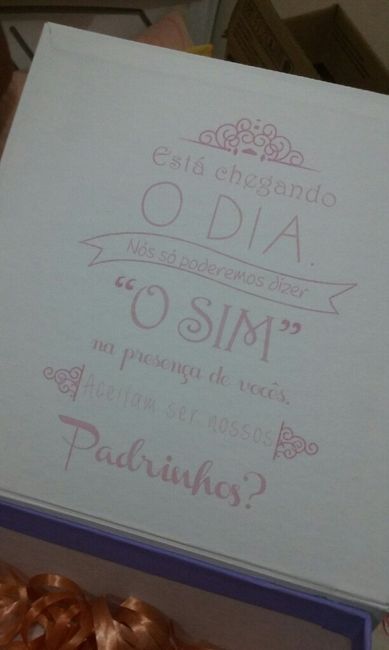 Está chegando
O DIA.
Nós só poderemos dizer
“O SIM”
na presença de vocês.
Aceitam ser nossos
Padrinhos?